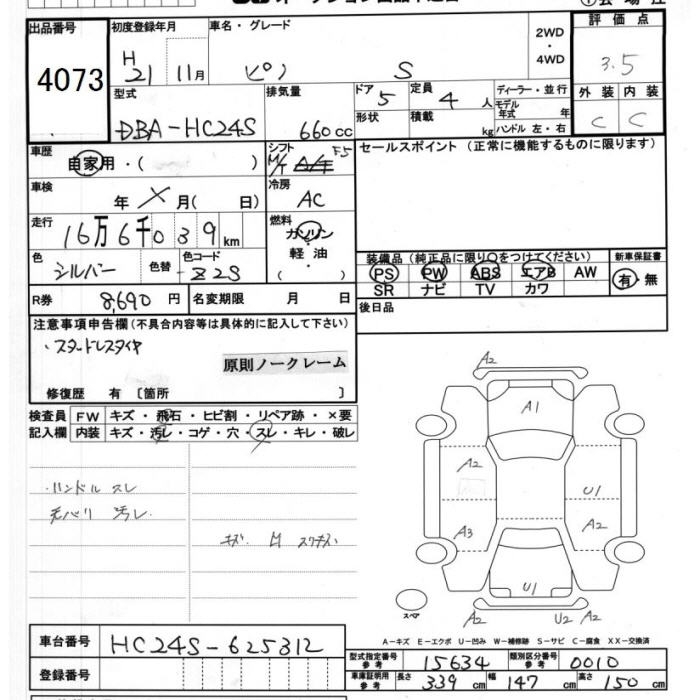 出品番号
4073
初度登録年月
H 21 11月
車名・グレード
ピノ S
2WD
・
4WD
評価点
3.5
外装 内装
C C
型式
DBA-HC24S
排気量
660cc
ドア 5
形状
定員 4人
積載 kg
ディーラー・並行
モデル年式 年
ハンドル 左・右
車歴
自家用・( )
シフト F5
M/T A/T
セールスポイント (正常に機能するものに限ります)
車検
年 X 月( 日)
冷房
AC
走行
16万6千039km
燃料
ガソリン
軽油
・( )
色
シルバー
色替
色コード
Z2S
装備品 (純正品に限り○をつけてください)
新車保証書
PS PW ABS エアB AW
SR ナビ TV カワ
有・無
R券 8,690円
名変期限 月 日
後日品
注意事項申告欄 (不具合内容等は具体的に記入して下さい)
・スタッドレスタイヤ
原則ノークレーム
修復歴 有 [箇所 ]
検査員 FW キズ・飛石・ヒビ割・リペア跡・×要
記入欄 内装 キズ・汚レ・コゲ・穴・スレ・キレ・破レ
・ハンドル スレ
天バリ 汚レ
A2
A1
A2
U1
A3
A2
U1
A2
U2 A2
スペア
A-キズ E-エクボ U-凹み W-補修跡 S-サビ C-腐食 XX-交換済
車台番号 HC24S-625312
登録番号
型式指定番号 参考 15634
類別区分番号 参考 0010
車庫証明用 参考 長さ 339cm 幅 147cm 高さ 150cm